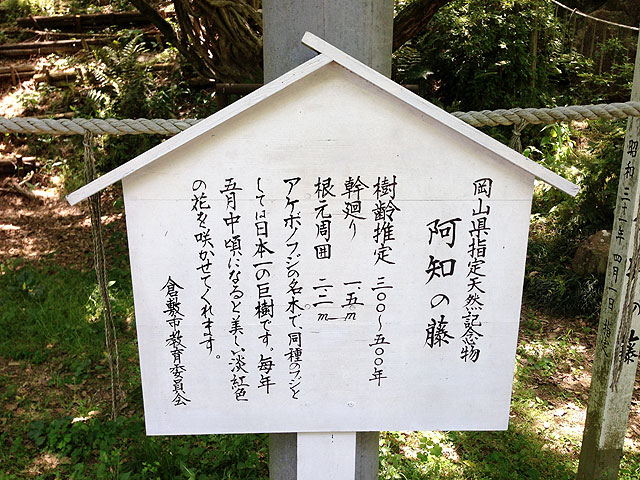 岡山県指定天然記念物
阿知の藤
樹齢推定 三〇〇〜五〇〇年
幹廻り 一.五m
根元周囲 二.二m
アケボノフジの名木で、同種のフジと
しては日本一の巨樹です。毎年
五月中頃になると美しい淡紅色
の花を咲かせてくれます。
倉敷市教育委員会
昭和三十一年四月一日指定
の藤